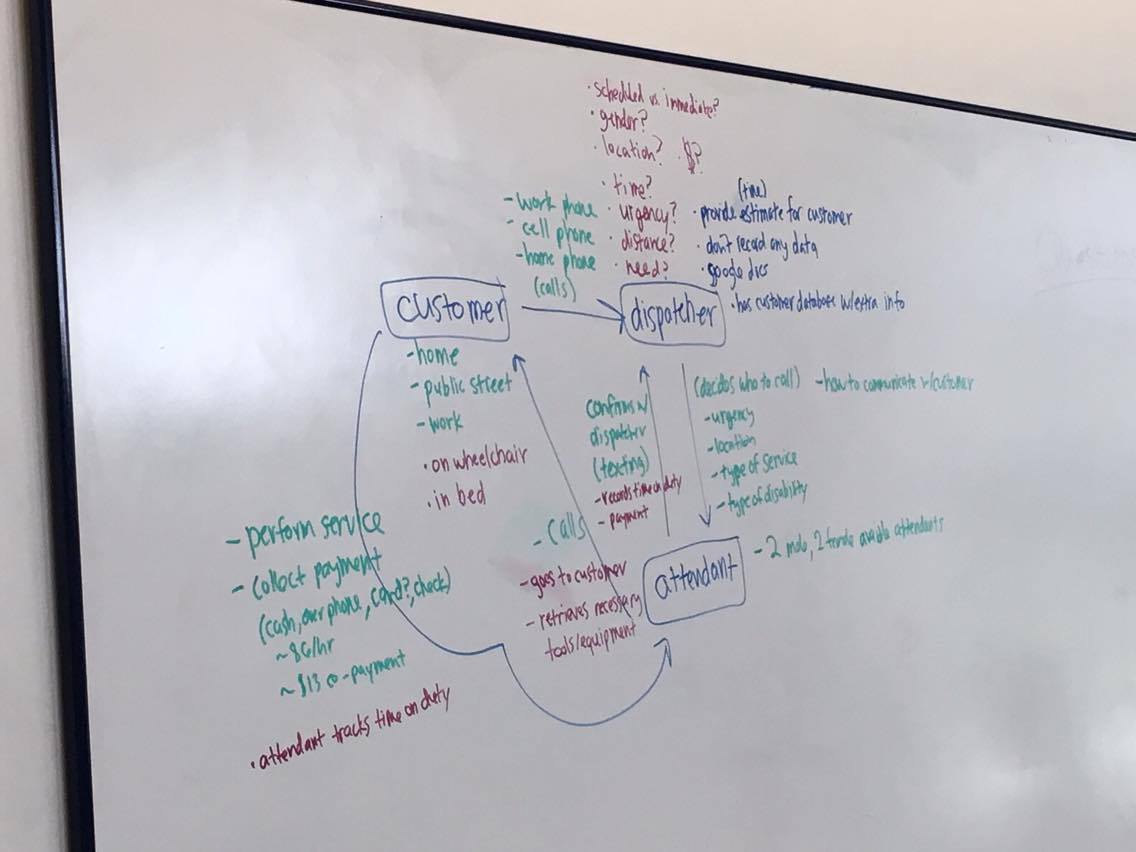 · scheduled vs. immediate?
· gender?
· location? · $?
· time?
· urgency?
· distance?
· need?
- work phone
- cell phone
- home phone
(calls)
(time)
· provide estimate for customer
· don't record any data
· google docs
· has customer database w/extra info
customer
dispatcher
- home
- public street
- work
· on wheelchair
· in bed
confirms w
dispatcher
(texting)
- records time on duty
- payment
(decides who to call) - how to communicate w/customer
- urgency
- location
- type of service
- type of disability
- calls
- goes to customer
- retrieves necessary
tools/equipment
attendant
- 2 male, 2 female available attendants
- perform service
- collect payment
(cash, over phone, card?, check)
~ $6/hr
~ $13 co-payment
· attendant tracks time on duty